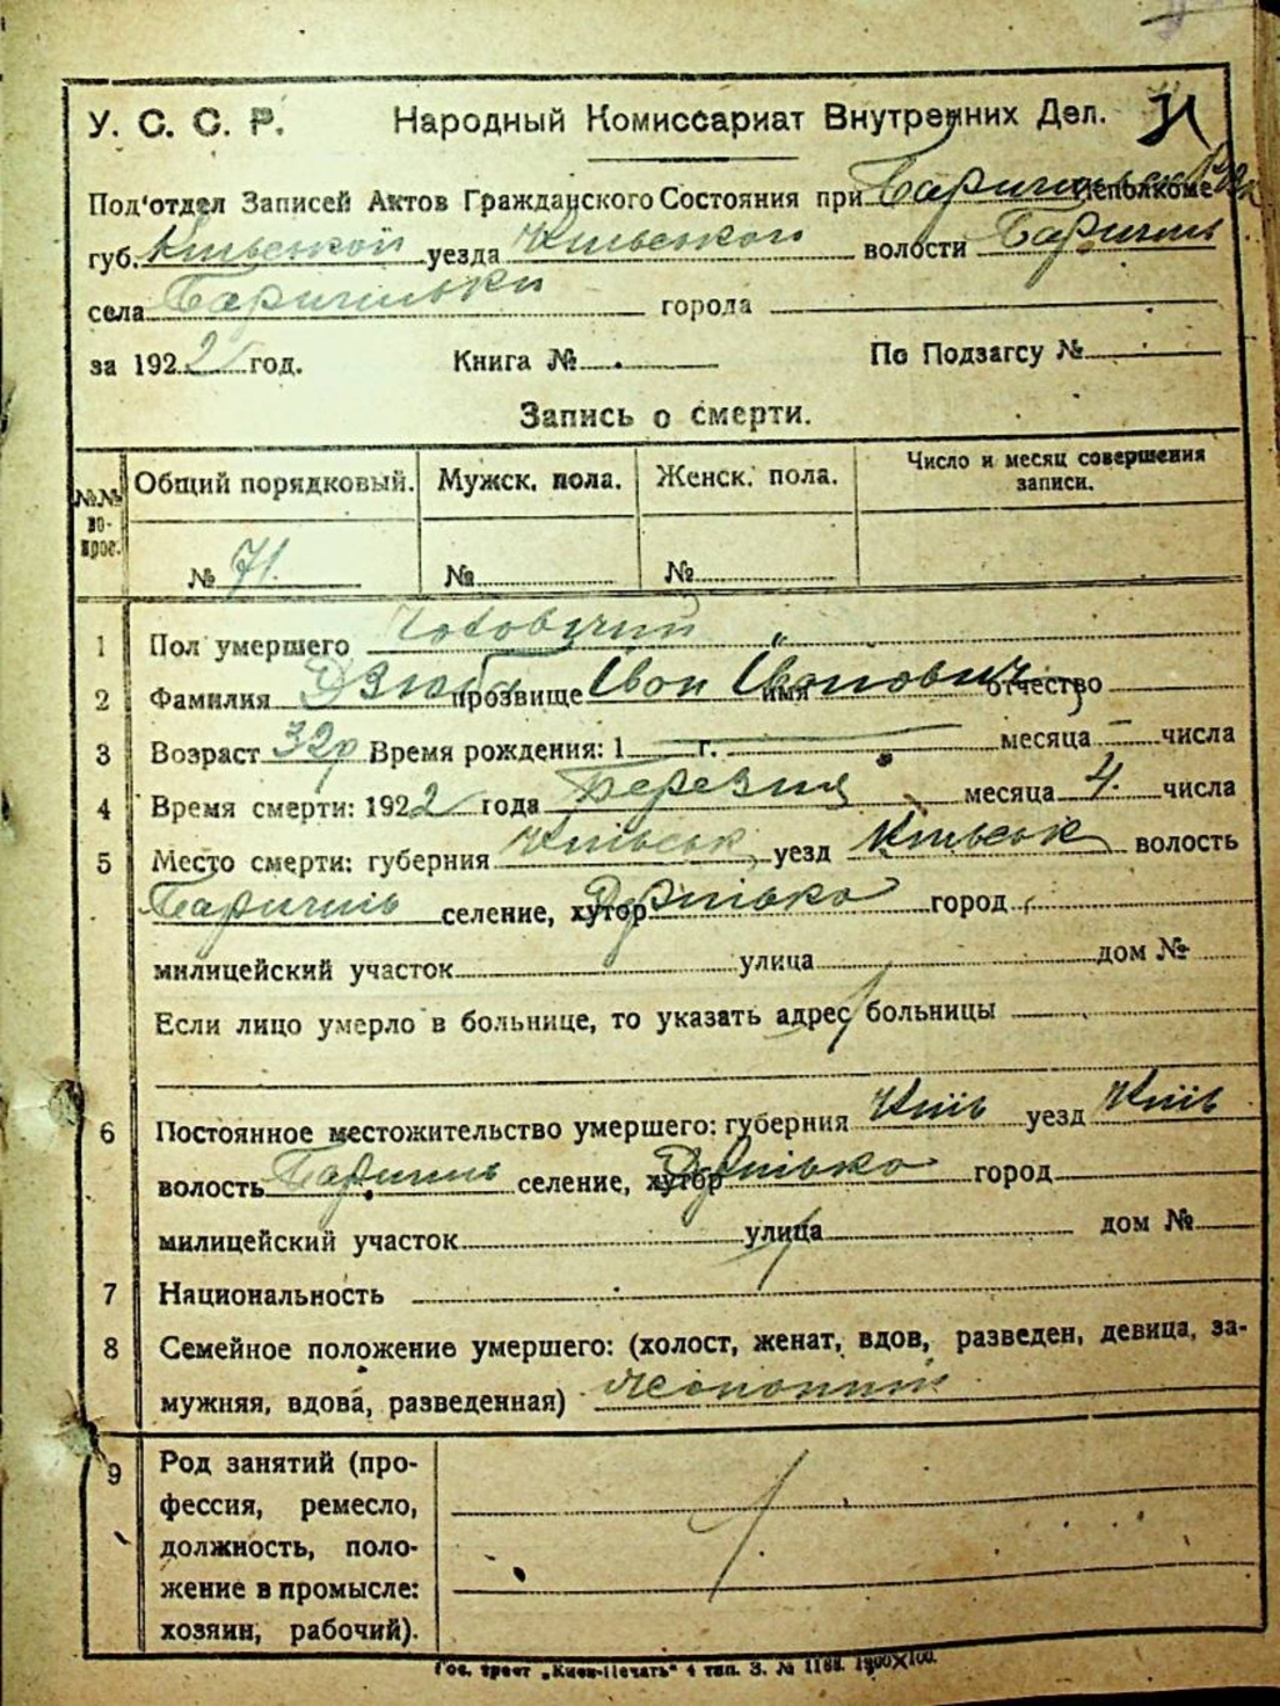 У. С. С. Р. Народный Комиссариат Внутренних Дел. 71
Под'отдел Записей Актов Гражданского Состояния при исполкоме
губ. Київської уезда Київського волости
села за 192 2 год. города
Книга № По Подзагсу №
Запись о смерти.
№№ вопрос. Общий порядковый. Мужск. пола. Женск. пола. Число и месяц совершения записи.
№ 71. № №
1 Пол умершего Чоловічий
2 Фамилия Дзюба прозвище Іван имя Іванович отчество
3 Возраст 32 р Время рождения: 1 г. — месяца — числа
4 Время смерти: 1922 года Березня месяца 4. числа
5 Место смерти: губерния Київськ уезд Київськ волость
селение, хутор город
милицейский участок улица дом №
Если лицо умерло в больнице, то указать адрес больницы
6 Постоянное местожительство умершего: губерния Київ уезд Київ
волость селение, хутор город
милицейский участок улица дом №
7 Национальность
8 Семейное положение умершего: (холост, женат, вдов, разведен, девица, за-
мужняя, вдова, разведенная)
9 Род занятий (про-
фессия, ремесло,
должность, поло-
жение в промысле:
хозяин, рабочий).
Гос. трест „Киев-Печать“ 4 тип. З. № 1168. 1900×100.